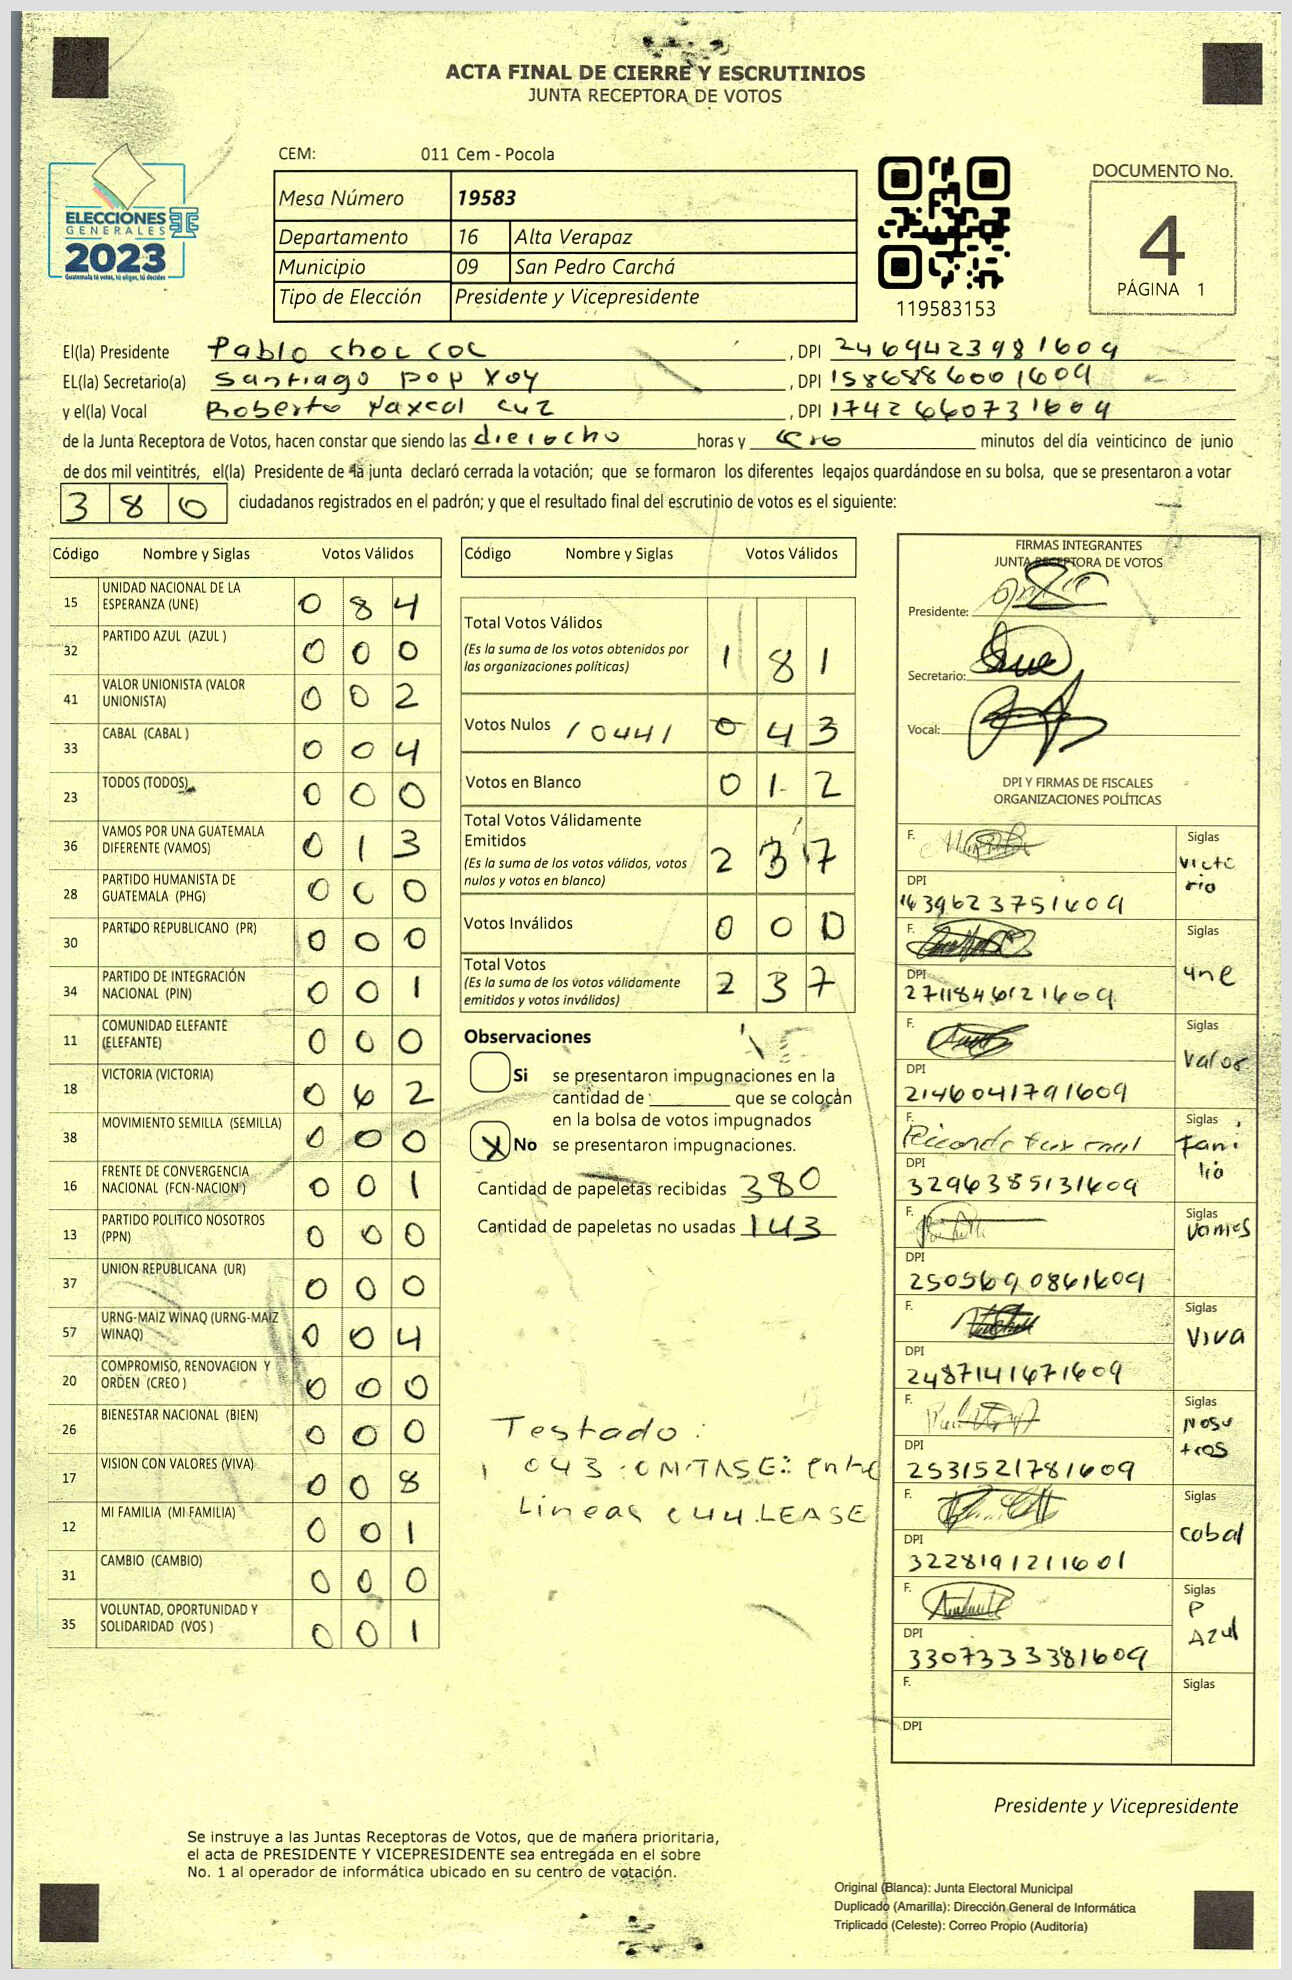 ACTA FINAL DE CIERRE Y ESCRUTINIOS
JUNTA RECEPTORA DE VOTOS
ELECCIONES
GENERALES
2023
Guatemala tú votas, tú eliges, tú decides
CEM: 011 Cem - Pocola
Mesa Número 19583
Departamento 16 Alta Verapaz
Municipio 09 San Pedro Carchá
Tipo de Elección Presidente y Vicepresidente
119583153
DOCUMENTO No.
4
PÁGINA 1
El(la) Presidente Pablo choc coc , DPI 2469423981609
EL(la) Secretario(a) Santiago pop xoy , DPI 1586886001609
y el(la) Vocal Roberto Yaxcal cuz , DPI 1742660731609
de la Junta Receptora de Votos, hacen constar que siendo las dieciocho horas y cero minutos del día veinticinco de junio
de dos mil veintitrés, el(la) Presidente de la junta declaró cerrada la votación; que se formaron los diferentes legajos guardándose en su bolsa, que se presentaron a votar
3 8 0 ciudadanos registrados en el padrón; y que el resultado final del escrutinio de votos es el siguiente:
Código Nombre y Siglas Votos Válidos
15 UNIDAD NACIONAL DE LA ESPERANZA (UNE) 0 8 4
32 PARTIDO AZUL (AZUL ) 0 0 0
41 VALOR UNIONISTA (VALOR UNIONISTA) 0 0 2
33 CABAL (CABAL ) 0 0 4
23 TODOS (TODOS) 0 0 0
36 VAMOS POR UNA GUATEMALA DIFERENTE (VAMOS) 0 1 3
28 PARTIDO HUMANISTA DE GUATEMALA (PHG) 0 0 0
30 PARTIDO REPUBLICANO (PR) 0 0 0
34 PARTIDO DE INTEGRACIÓN NACIONAL (PIN) 0 0 1
11 COMUNIDAD ELEFANTE (ELEFANTE) 0 0 0
18 VICTORIA (VICTORIA) 0 6 2
38 MOVIMIENTO SEMILLA (SEMILLA) 0 0 0
16 FRENTE DE CONVERGENCIA NACIONAL (FCN-NACION ) 0 0 1
13 PARTIDO POLITICO NOSOTROS (PPN) 0 0 0
37 UNION REPUBLICANA (UR) 0 0 0
57 URNG-MAIZ WINAQ (URNG-MAIZ WINAQ) 0 0 4
20 COMPROMISO, RENOVACION Y ORDEN (CREO ) 0 0 0
26 BIENESTAR NACIONAL (BIEN) 0 0 0
17 VISION CON VALORES (VIVA) 0 0 8
12 MI FAMILIA (MI FAMILIA) 0 0 1
31 CAMBIO (CAMBIO) 0 0 0
35 VOLUNTAD, OPORTUNIDAD Y SOLIDARIDAD (VOS ) 0 0 1
Código Nombre y Siglas Votos Válidos
Total Votos Válidos
(Es la suma de los votos obtenidos por las organizaciones políticas) 1 8 1
Votos Nulos / 0441 0 4 3
Votos en Blanco 0 1 2
Total Votos Válidamente Emitidos
(Es la suma de los votos válidos, votos nulos y votos en blanco) 2 3 7
Votos Inválidos 0 0 0
Total Votos
(Es la suma de los votos válidamente emitidos y votos inválidos) 2 3 7
Observaciones
Si se presentaron impugnaciones en la
cantidad de ________ que se colocan
en la bolsa de votos impugnados
X No se presentaron impugnaciones.
Cantidad de papeletas recibidas 380
Cantidad de papeletas no usadas 143
Testado:
043 :OMITASE: entre
Lineas 044.LEASE
FIRMAS INTEGRANTES
JUNTA RECEPTORA DE VOTOS
Presidente:
Secretario:
Vocal:
DPI Y FIRMAS DE FISCALES
ORGANIZACIONES POLÍTICAS
F. Siglas Victoria
DPI 1639623751609
F. Siglas une
DPI 2711846121609
F. Siglas Valor
DPI 2146041791609
F. Ricardo Siglas Familia
DPI 3296385131609
F. Siglas Vamos
DPI 2505690861609
F. Siglas Viva
DPI 2487141671609
F. Siglas Nosotros
DPI 2531521781609
F. Siglas Cabal
DPI 3228191211601
F. Siglas P Azul
DPI 3307333381609
F. Siglas
DPI
Presidente y Vicepresidente
Se instruye a las Juntas Receptoras de Votos, que de manera prioritaria,
el acta de PRESIDENTE Y VICEPRESIDENTE sea entregada en el sobre
No. 1 al operador de informática ubicado en su centro de votación.
Original (Blanca): Junta Electoral Municipal
Duplicado (Amarilla): Dirección General de Informática
Triplicado (Celeste): Correo Propio (Auditoría)